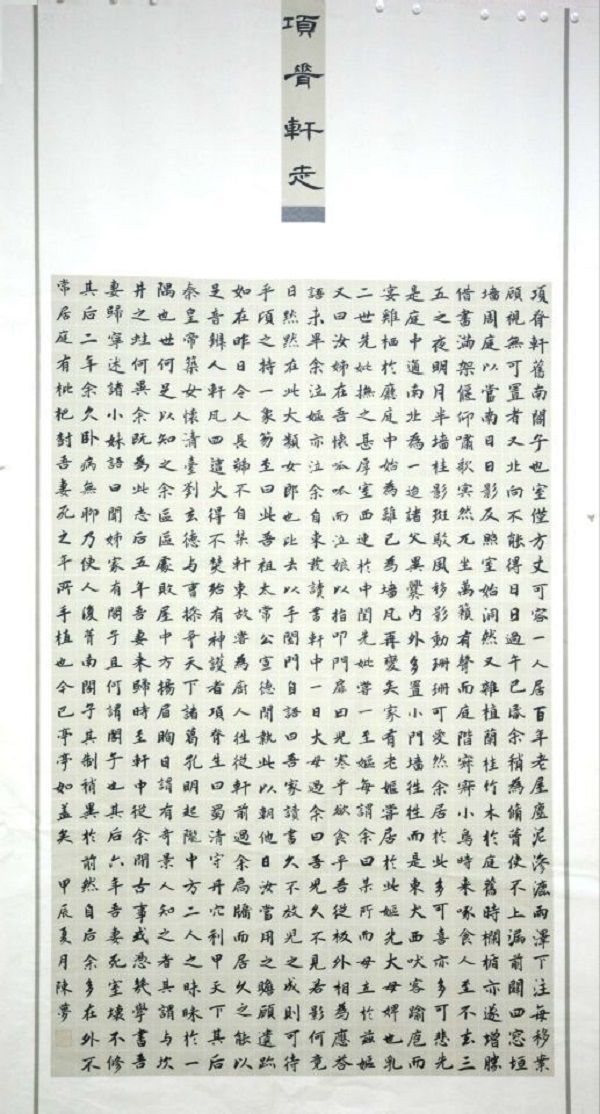 項脊軒志
項脊軒舊南閣子也室僅方丈可容一人居百年老屋塵泥滲漉雨澤下注每移案
顧視無可置者又北向不能得日日過午已昏余稍為脩葺使不上漏前闢四窓垣
墻周庭以當南日日影反照室始洞然又雜植蘭桂竹木於庭舊時欄楯亦遂增勝
借書滿架偃仰嘯歌冥然兀坐萬籟有聲而庭階寂寂小鳥時來啄食人至不去三
五之夜明月半墻桂影斑駁風移影動珊珊可愛然余居於此多可喜亦多可悲先
是庭中通南北為一迨諸父異爨內外多置小門墻往往而是東犬西吠客踰庖而
宴雞栖於廳庭中始為籬已為墻凡再變矣家有老嫗嘗居於此嫗先大母婢也乳
二世先妣撫之甚厚室西連於中閨先妣嘗一至嫗每謂余曰某所而母立於茲嫗
又曰汝姊在吾懷呱呱而泣娘以指叩門扉曰兒寒乎欲食乎吾從板外相為應答
語未畢余泣嫗亦泣余自束髮讀書軒中一日大母過余曰吾兒久不見若影何竟
日默默在此大類女郎也比去以手闔門自語曰吾家讀書久不效兒之成則可待
乎頃之持一象笏至曰此吾祖太常公宣德間執此以朝他日汝當用之瞻顧遺跡
如在昨日令人長號不自禁軒東故嘗為廚人往從軒前過余扃牖而居久之能以
足音辨人軒凡四遭火得不焚殆有神護者項脊生曰蜀清守丹穴利甲天下其后
秦皇帝築女懷清臺劉玄德與曹操爭天下諸葛孔明起隴中方二人之昧昧於一
隅也世何足以知之余區區處敗屋中方揚眉瞬目謂有奇景人知之者其謂與坎
井之蛙何異余既為此志后五年吾妻來歸時至軒中從余問古事或憑幾學書吾
妻歸寧述諸小妹語曰聞姊家有閣子且何謂閣子也其后六年吾妻死室壞不修
其后二年余久臥病無聊乃使人復葺南閣子其制稍異於前然自后余多在外不
常居庭有枇杷樹吾妻死之年所手植也今已亭亭如蓋矣 甲辰夏月陳夢